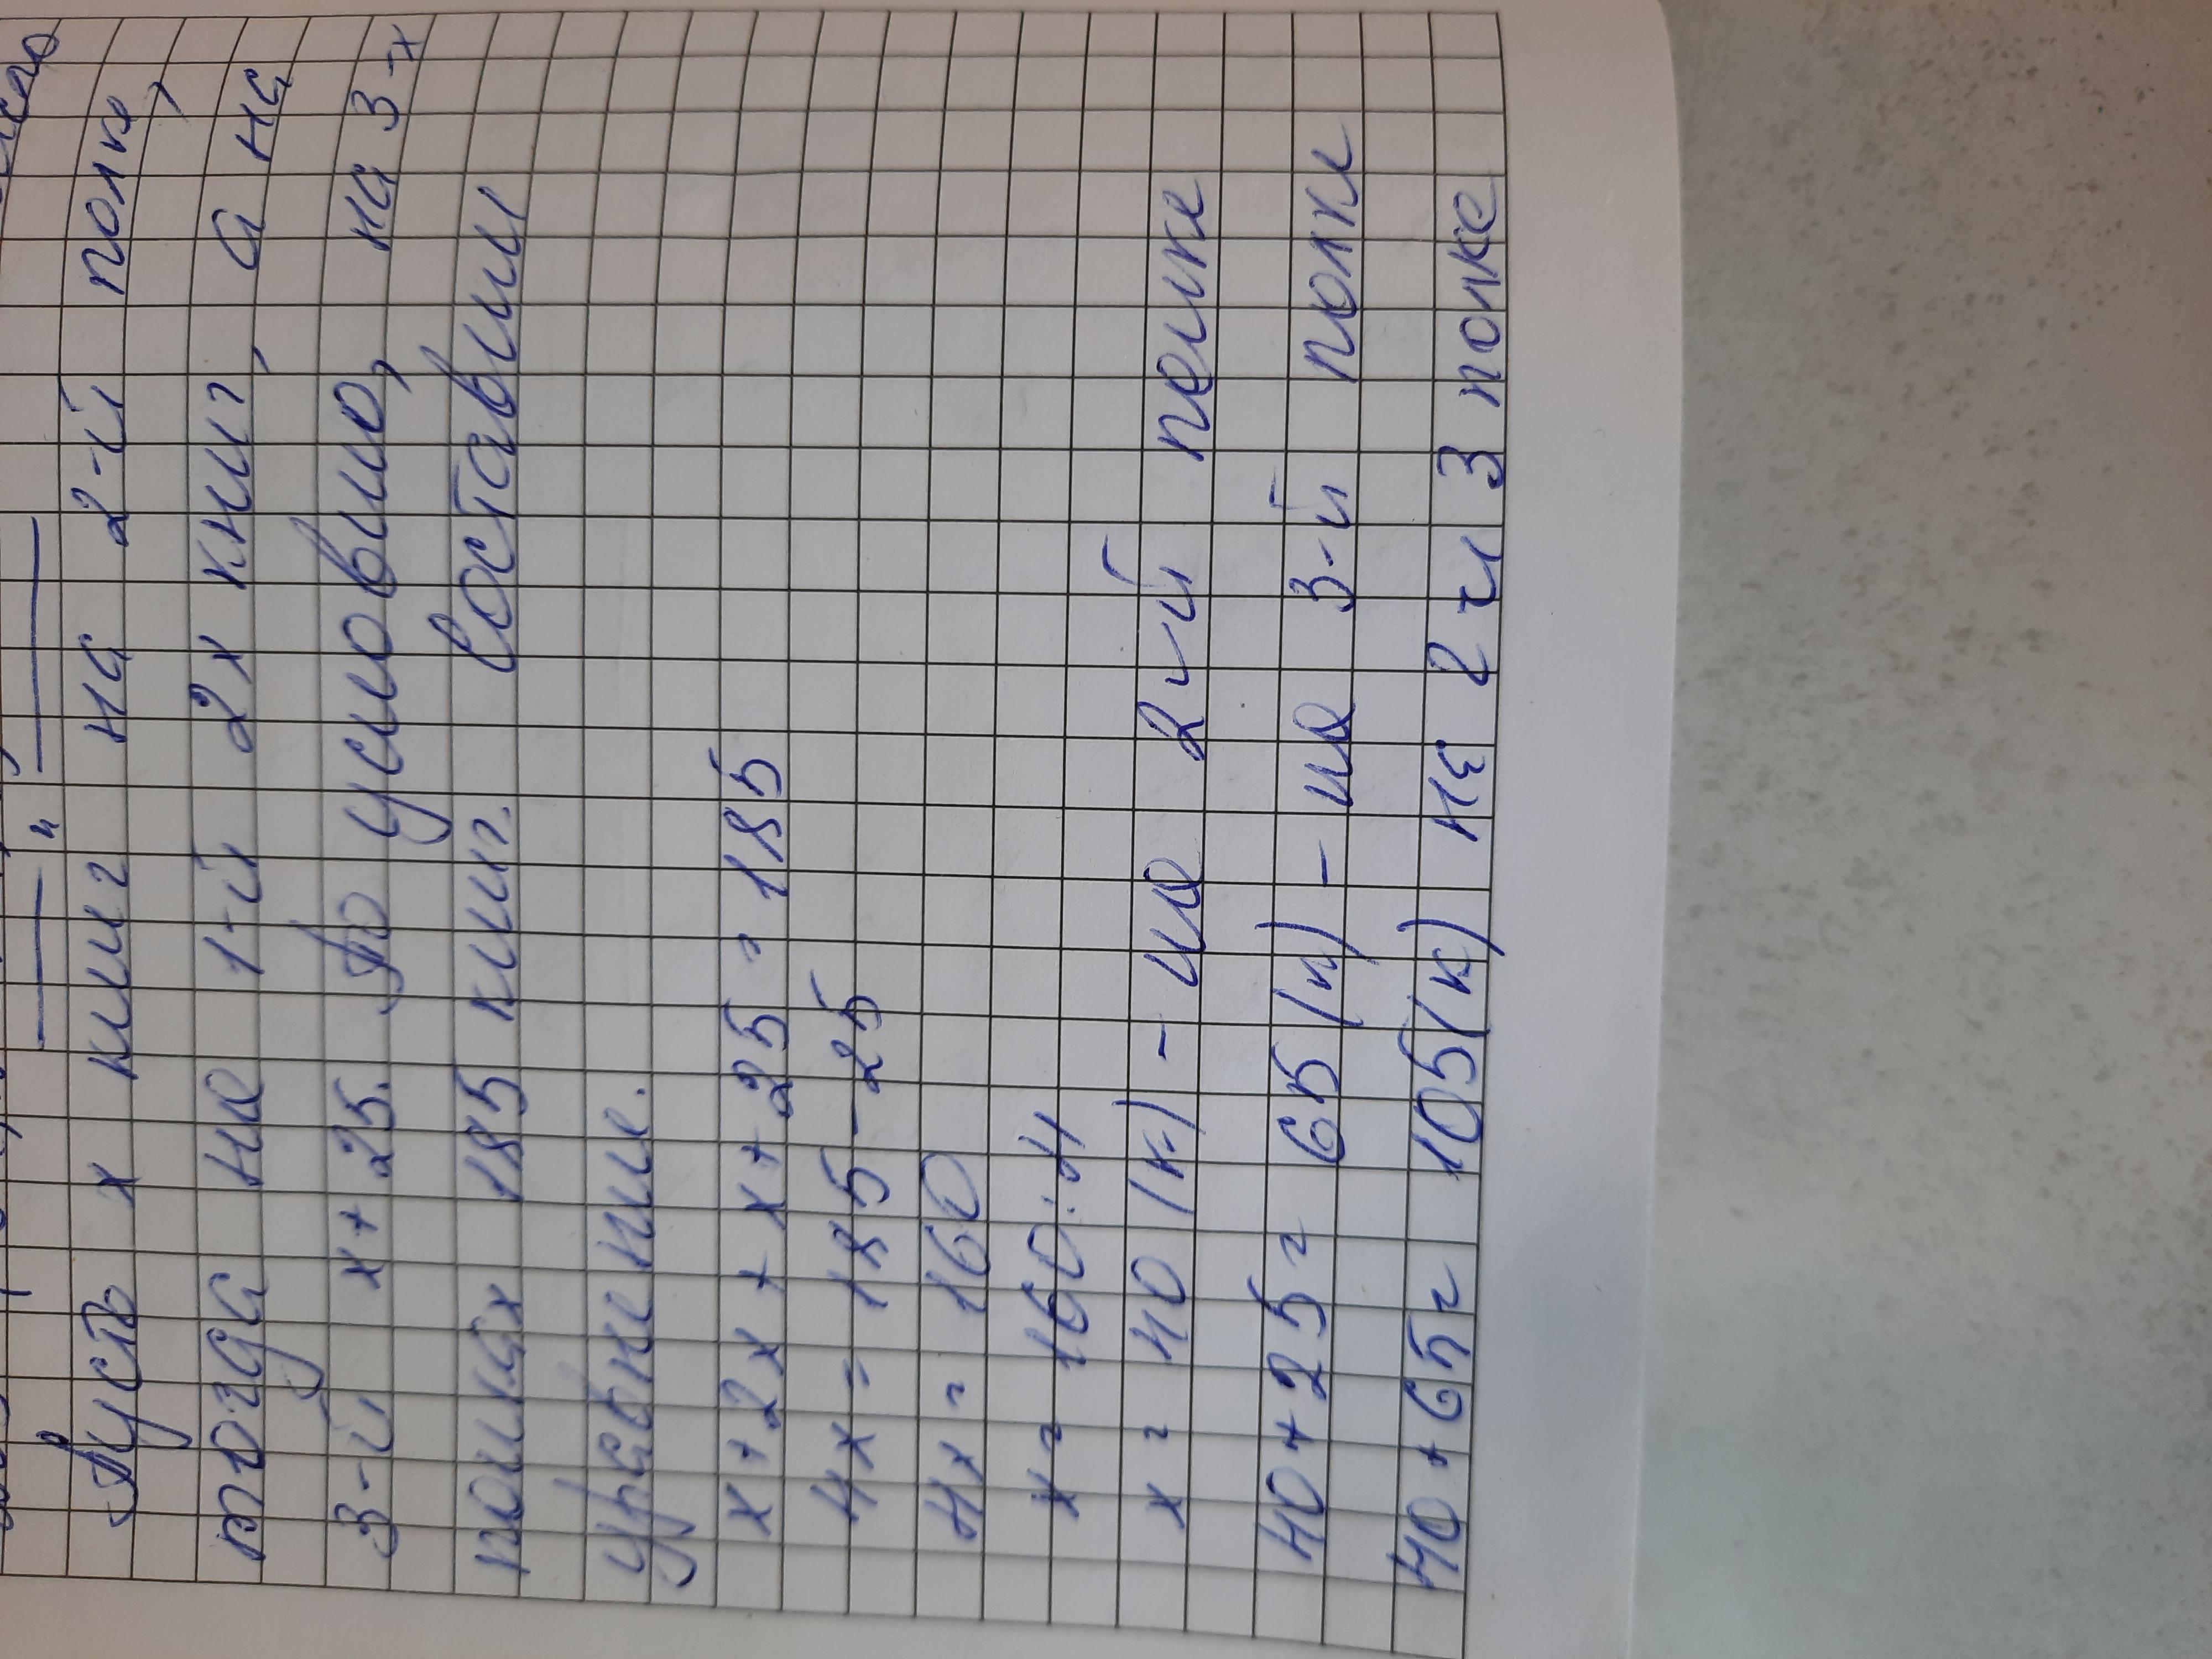 Пусть х книг на 2-й полке,
тогда на 1-й 2х книг, а на
3-й х+25. По условию, на 3-х
полках 185 книг. Составим
уравнение.
х+2х+х+25=185
4х=185-25
4х=160
х=160:4
х=40(к)-на 2-й полке
40+25=65(к)-на 3-й полке
40+65=105(к) на 2 и 3 полке